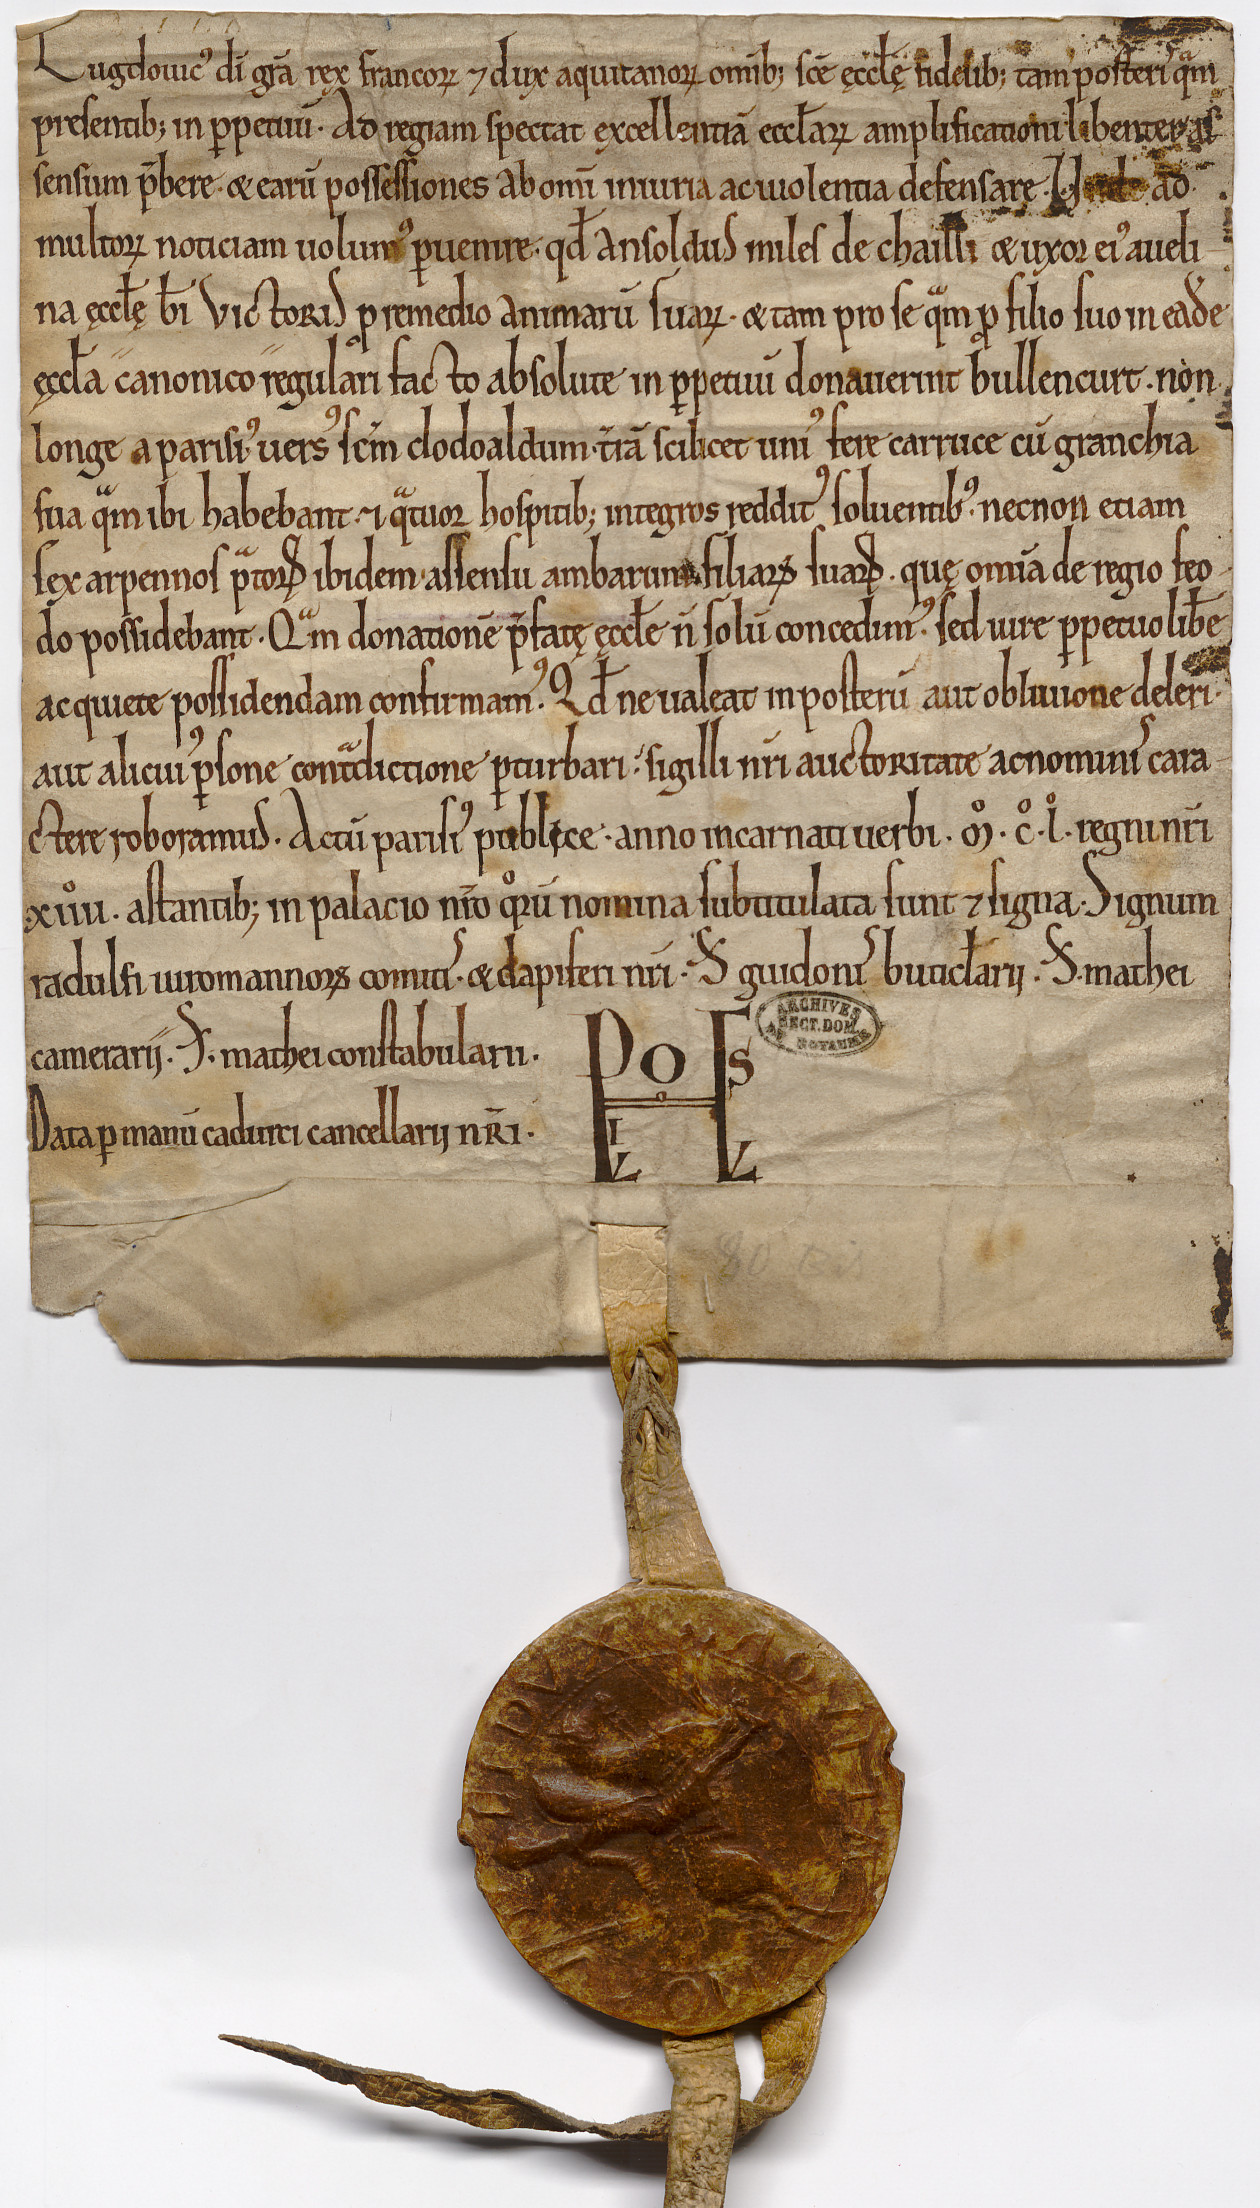 Lugdouic᾿ dī gr̄a rex francoꝝ ⁊ dux aquitanoꝝ omīb; sc̄ę ęccl̄ę fidelib; tam posteris qᵃm
presentib; in ꝑpetuū. Ad regiam spectat excellentiā eccl̄arꝝ amplificationi libenter as
sensum p̄bere. & earū possessiones ab omī iniuria ac uiolentia defensare. Unde ad
multoꝝ noticiam uolum᾿ ꝑuenire. qd̄ Ansoldus miles de chailli & uxor ei᾿ aueli-
na ęccl̄ę bī Victoris p remedio animarū suarꝝ. & tam pro se qᵃm ꝓ filio suo in eadē
ęccl̄a canonico regulari facto absolute in ꝑpetuū donauerint bullencurt. non
longe a parisi᾿ uers᾿ sc̄m clodoaldum. tr̄ā scilicet uni᾿ fere carruce cū granchia
sua qᵃm ibi habebant. ⁊ qᵃtuor hospitib; integros reddit᾿ soluentib᾿. necnon etiam
sex arpennos pᵃtorꝝ ibidem assensu ambarum filiarꝝ suarꝝ. quę omīa de regio feo-
do possidebant. Qᵃm donationē p̄fatę ęccl̄e n̄ solū concedim᾿. sed iure ꝑpetuo lib̄e
ac quiete possidendam confirmam᾿. Qd̄ ne ualeat in posterū aut obliuione deleri.
aut alicui᾿ ꝑsone contᵃdictione ꝑturbari. sigilli nr̄i auctoritate ac nominis cara-
ctere roboramus. Actū parisi᾿ publice. anno incarnati uerbi. mͦ. cͦ. lͦ. regni nr̄i
xiiͦii. astantib; in palacio nr̄o qͦrū nomina subtitulata sunt ⁊ signa. Signum
radulfi uiromannorꝝ comitis. & dapiferi nr̄i. S̄ guidonis buticl̄arii. S̄. mathei
camerarii. S̄. mathei constabularii.
Data ꝑ manū cadurci cancellarii nr̄i.
LVDOVICVS
ARCHIVES
SECT. DOM.
DU ROYAUME
80 bis